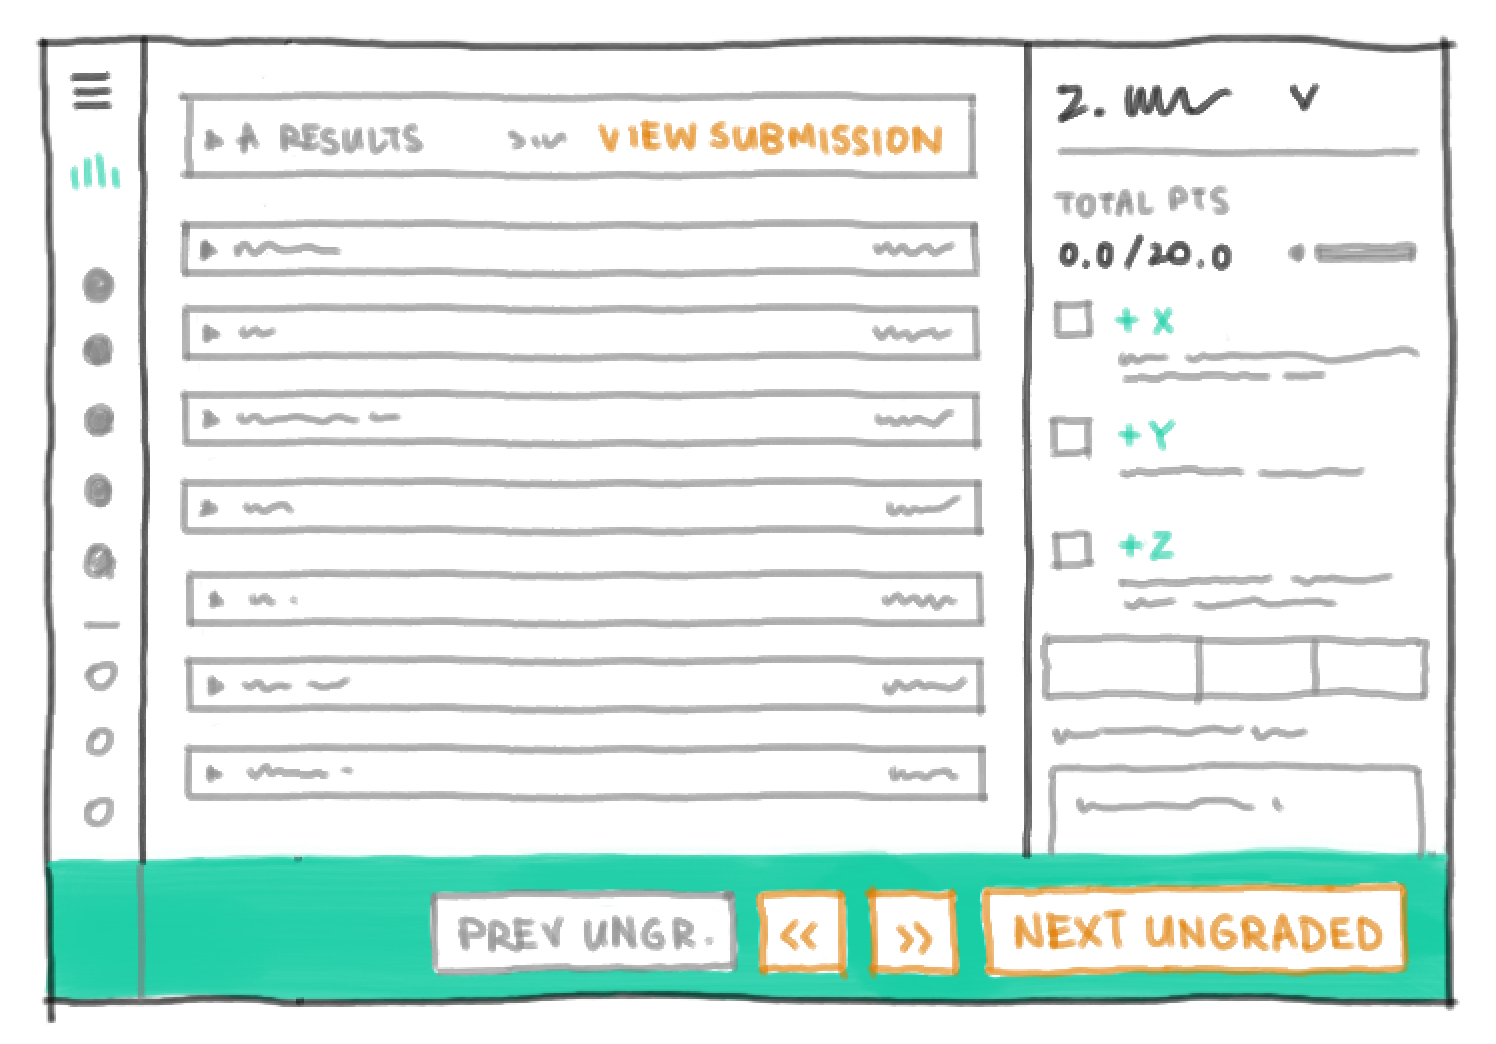 A RESULTS VIEW SUBMISSION
2.
TOTAL PTS
0.0/20.0
+ X
+Y
+Z
PREV UNGR.
<<
>>
NEXT UNGRADED